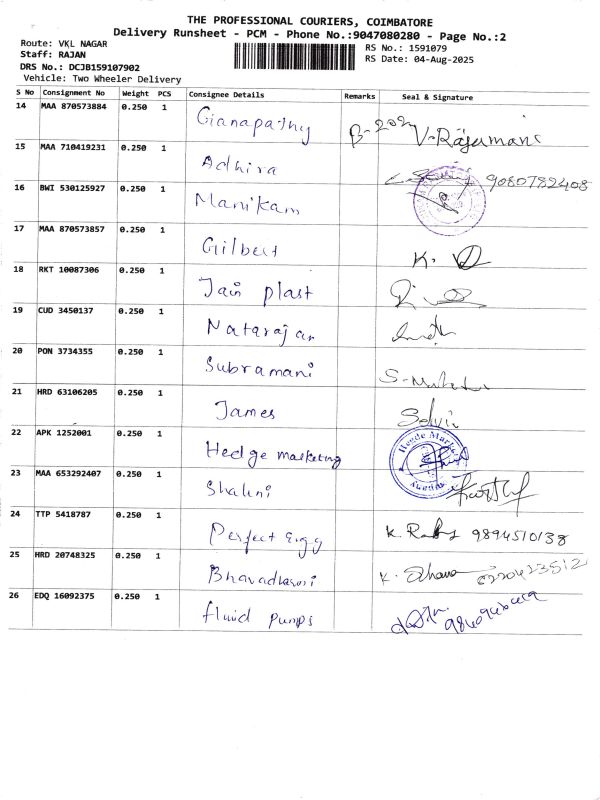 THE PROFESSIONAL COURIERS, COIMBATORE
Delivery Runsheet - PCM - Phone No.:9047080280 - Page No.:2
Route: VKL NAGAR
RS No.: 1591079
Staff: RAJAN
RS Date: 04-Aug-2025
DRS No.: DCJB159107902
Vehicle: Two Wheeler Delivery
S No Consignment No Weight PCS Consignee Details Remarks Seal & Signature
14 MAA 870573884 0.250 1 Gianapathy V-Rajamani
15 MAA 710419231 0.250 1 Adhira 9080782408
16 BWI 530125927 0.250 1 Manikam
17 MAA 870573857 0.250 1 Gilbert K.
18 RKT 10087306 0.250 1 Jain plast
19 CUD 3450137 0.250 1 Natarajan
20 PON 3734355 0.250 1 Subramani
21 HRD 63106205 0.250 1 James Selvi
22 APK 1252001 0.250 1 Hedge marketing
23 MAA 653292407 0.250 1 Shalini
24 TTP 5418787 0.250 1 Perfect Engg K. 9894510138
25 HRD 20748325 0.250 1 Bhavadharani K.
26 EDQ 16092375 0.250 1 fluid pumps